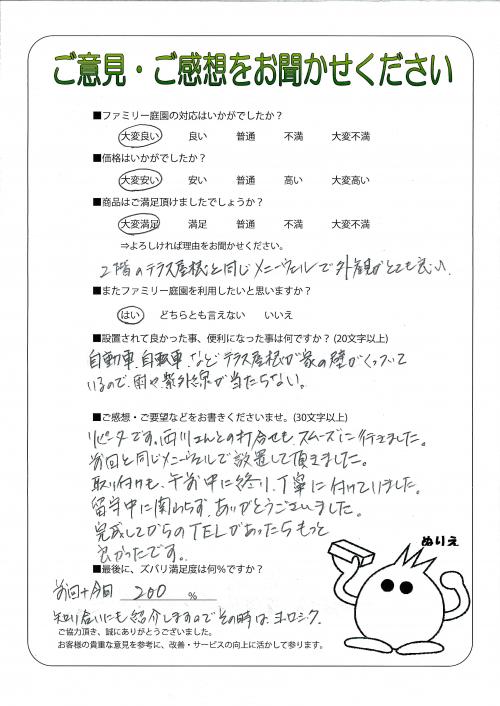 ご意見・ご感想をお聞かせください
■ファミリー庭園の対応はいかがでしたか?
大変良い 良い 普通 不満 大変不満
■価格はいかがでしたか?
大変安い 安い 普通 高い 大変高い
■商品はご満足頂けましたでしょうか?
大変満足 満足 普通 不満 大変不満
⇒よろしければ理由をお聞かせください。
2階のテラス屋根と同じメニーウェルで外観がとても良い。
■またファミリー庭園を利用したいと思いますか?
はい どちらとも言えない いいえ
■設置されて良かった事、便利になった事は何ですか? (20文字以上)
自動車、自転車、などテラス屋根が家の壁がくっついて
いるので、雨や紫外線が当たらない。
■ご感想・ご要望などをお書きくださいませ。(30文字以上)
リピータです。西川さんとの打合せも、スムーズに行きました。
前回と同じメニーウェルで設置して頂きました。
取り付けも、午前中に終り、丁寧に付けていました。
留守中に関わらず、ありがとうございました。
完成してからのTELがあったらもっと
良かったです。
ぬりえ
■最後に、ズバリ満足度は何%ですか?
前回+今回 200 %
知り合いにも紹介しますのでその時は、ヨロシク.
ご協力頂き、誠にありがとうございました。
お客様の貴重な意見を参考に、改善・サービスの向上に活かして参ります。